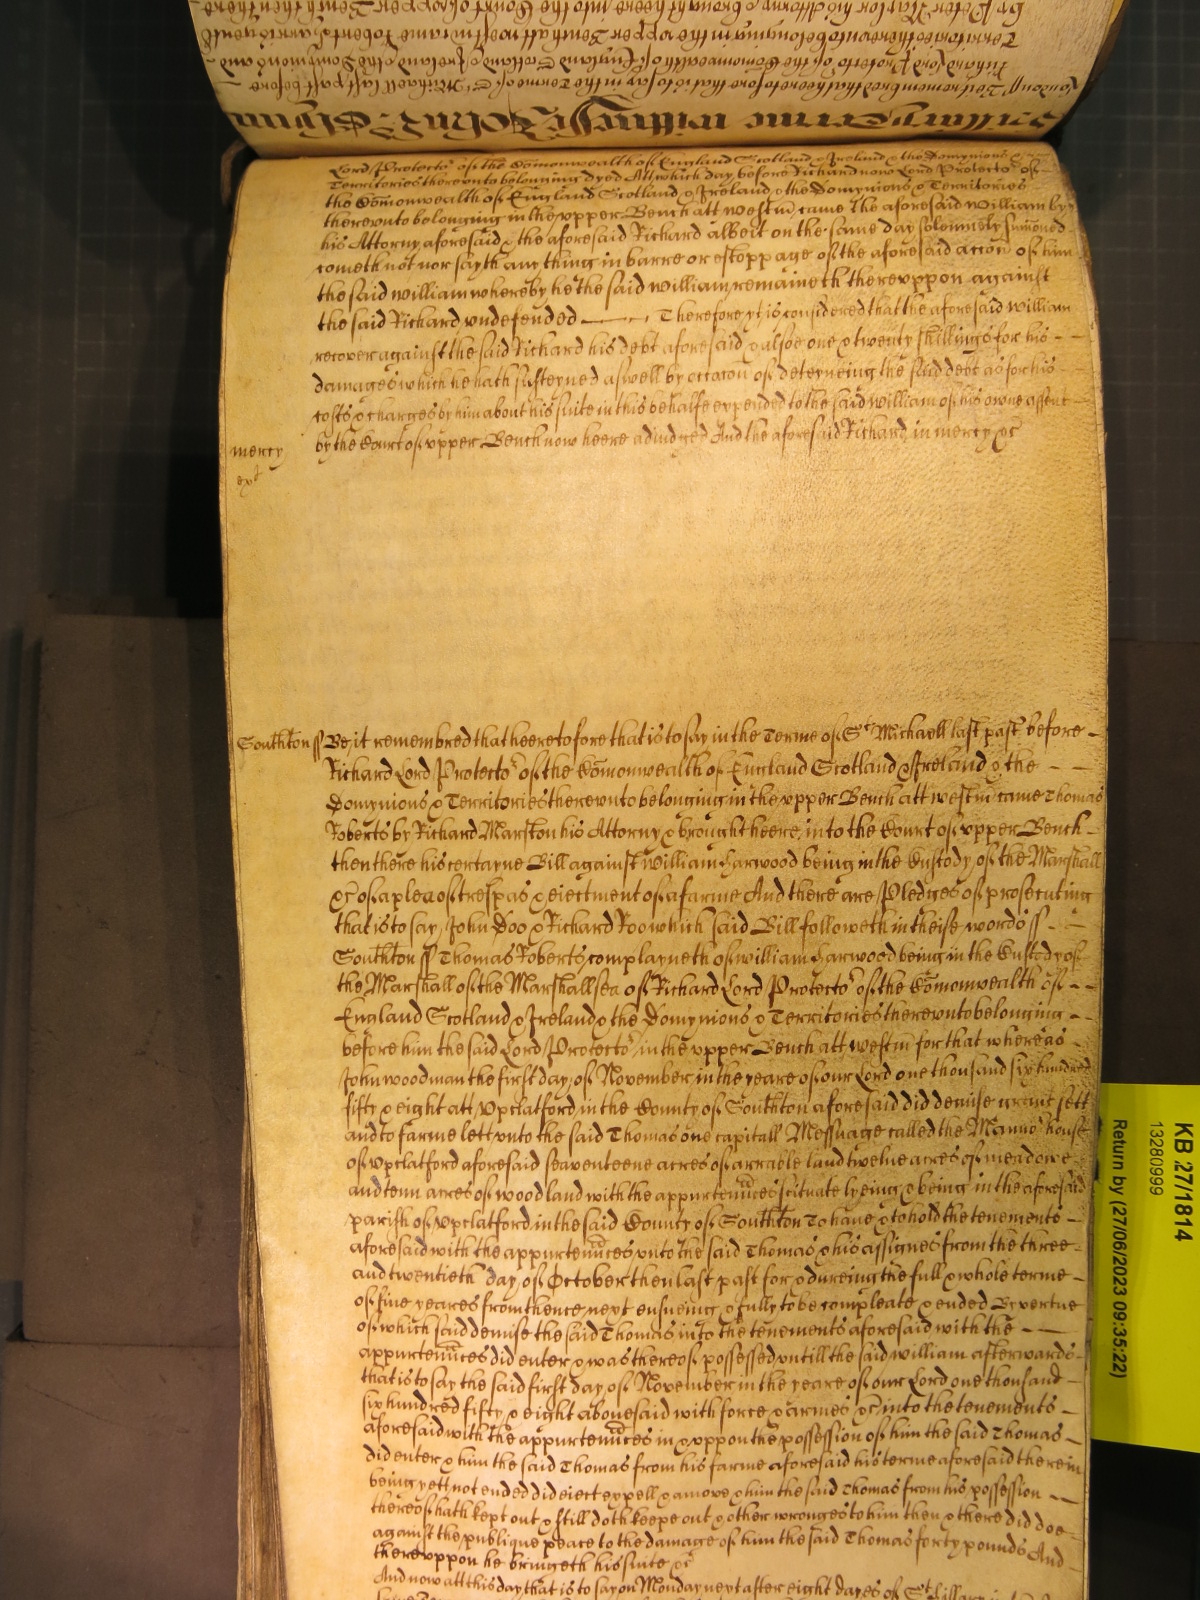 by Peter Naylor his Attorny & brought heere into the Court of vpper Bench then there
Territories therevnto belonging in the vpper Bench att westm̄ came Robert
Richard Lord Protector of the Comonwealth of England Scotland & Ireland & the Dominions and
Be it remembred that heretofore that is to say in the Terme of St Michaell last past before
Hillary Terme
Lord Protector of the Com̄onwealth of England Scotland & Ireland & the Domynions &
Territories therevnto belonging dyed Att which day before Richard now Lord Protector of
the Com̄onwealth of England Scotland & Ireland & the Domynions & Territories
therevnto belonging in the vpper Bench att westm̄ came the aforesaid William by
his Attorny aforesaid & the aforesaid Richard albeit on the same day solemnely sum̄oned
cometh not nor sayth any thing in barre or estoppage of the aforesaid accōn of him
the said william whereby he the said william remaineth therevppon against
the said Richard vndefended —— Therefore yt is considered that the aforesaid william
recover against the said Richard his debt aforesaid & alsoe one & twenty shillings for his -
damages which he hath susteyned aswell by occacōn of deteyneing the said debt as for his
costs & charges by him about his suite in this behalfe expended to the said william of his owne assent
by the Court of vpper Bench now heere adiudged And the aforesaid Richard in mercy &c̄
mercy
Southt̄on ss Be it remembred that heeretofore that is to say in the Terme of St Michaell last past before -
Richard Lord Protector of the Com̄onwealth of England Scotland & Ireland & the - -
Domynions & Territories therevnto belonging in the vpper Bench att westm̄ came Thomas
Roberts by Richard Marston his Attorny & brought heere into the Court of vpper Bench -
then there his certayne Bill against William Harwood being in the Custody of the Marshall
&c̄ of a plea of trespas & eiectment of a farme And there are Pledges of prosecuting
that is to say John Doo & Richard Roo which said Bill followeth in theise words ss - -
Southt̄on ss Thomas Roberts complayneth of william Harwood being in the Custody of
the Marshall of the Marshallsea of Richard Lord Protector of the Com̄onwealth of - -
England Scotland & Ireland & the Domynions & Territories therevnto belonging -
before him the said Lord Protector in the vpper Bench att westm̄ for that whereas
John woodman the first day of November in the yeare of our Lord one thousand six hundred
fifty & eight att Vpclatford in the County of Southt̄on aforesaid did demise grant sett
and to farme lett vnto the said Thomas one capitall Messuage called the Mannor house
of vpclatford aforesaid seaventeene acres of arrable land twelve acres of meadowe
and tenn acres of wood land with the appurtenn̄ces scituate lyeing & being in the aforesaid
parish of Vpclatford in the said County of Southt̄on To have & to hold the tenements -
aforesaid with the appurtenn̄ces vnto the said Thomas & his assignes from the three -
and twentieth day of October then last past for & dureing the full & whole terme -
of five yeares from thence next ensueing & fully to be compleate & ended By vertue
of which said demise the said Thomas into the tenements aforesaid with the - —
appurtenn̄ces did enter & was thereof possessed vntill the said william afterwards -
that is to say the said first day of November in the yeare of our Lord one thousand -
six hundred fifty & eight abovesaid with force & armes &c̄ into the tenements -
aforesaid with the appurtenn̄ces in & vppon the possession of him the said Thomas -
did enter & him the said Thomas from his farme aforesaid his terme aforesaid therein
being yett not ended did eiect expell & amove & him the said Thomas from his possession -
thereof hath kept out & still doth keepe out & other wronges to him then & there did doe -
against the publique peace to the damage of him the said Thomas forty pounds And -
therevppon he bringeth his suite &c̄
And now att this day that is to say on Monday next after eight dayes of St Hillary
KB 27/1814
13280999
Return by (27/06/2023 09:35:22)